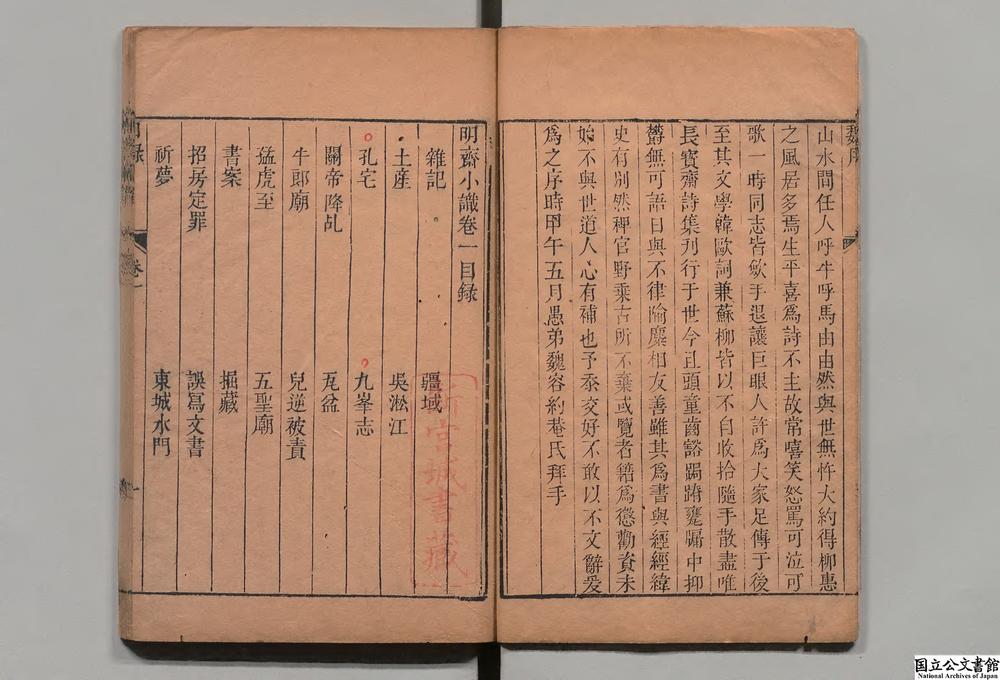 魏序
山水間任人呼牛呼馬由由然與世無忤大約得柳惠
之風居多焉生平喜爲詩不主故常嘻笑怒罵可泣可
歌一時同志皆斂手退讓巨眼人許爲大家足傳于後
至其文學韓歐詞兼蘇柳皆以不自收拾隨手散盡唯
長寶齋詩集刊行于世今且頭童齒豁跼蹐甕牖中抑
鬱無可語日與不律隃麋相友善雖其爲書與經經緯
史有別然稗官野乘古所不棄或覽者藉爲懲勸資未
始不與世道人心有補也予忝交好不敢以不文辭爰
爲之序時甲午五月愚弟魏容約菴氏拜手
明齋小識卷一目録
雜記 疆域
土産 吳淞江
孔宅 九峯志
關帝降乩 瓦盆
牛郎廟 兒逆被責
猛虎至 五聖廟
書案 掘藏
招房定罪 誤寫文書
祈夢 東城水門
卷一
一
城書藏
国立公文書館
National Archives of Japan